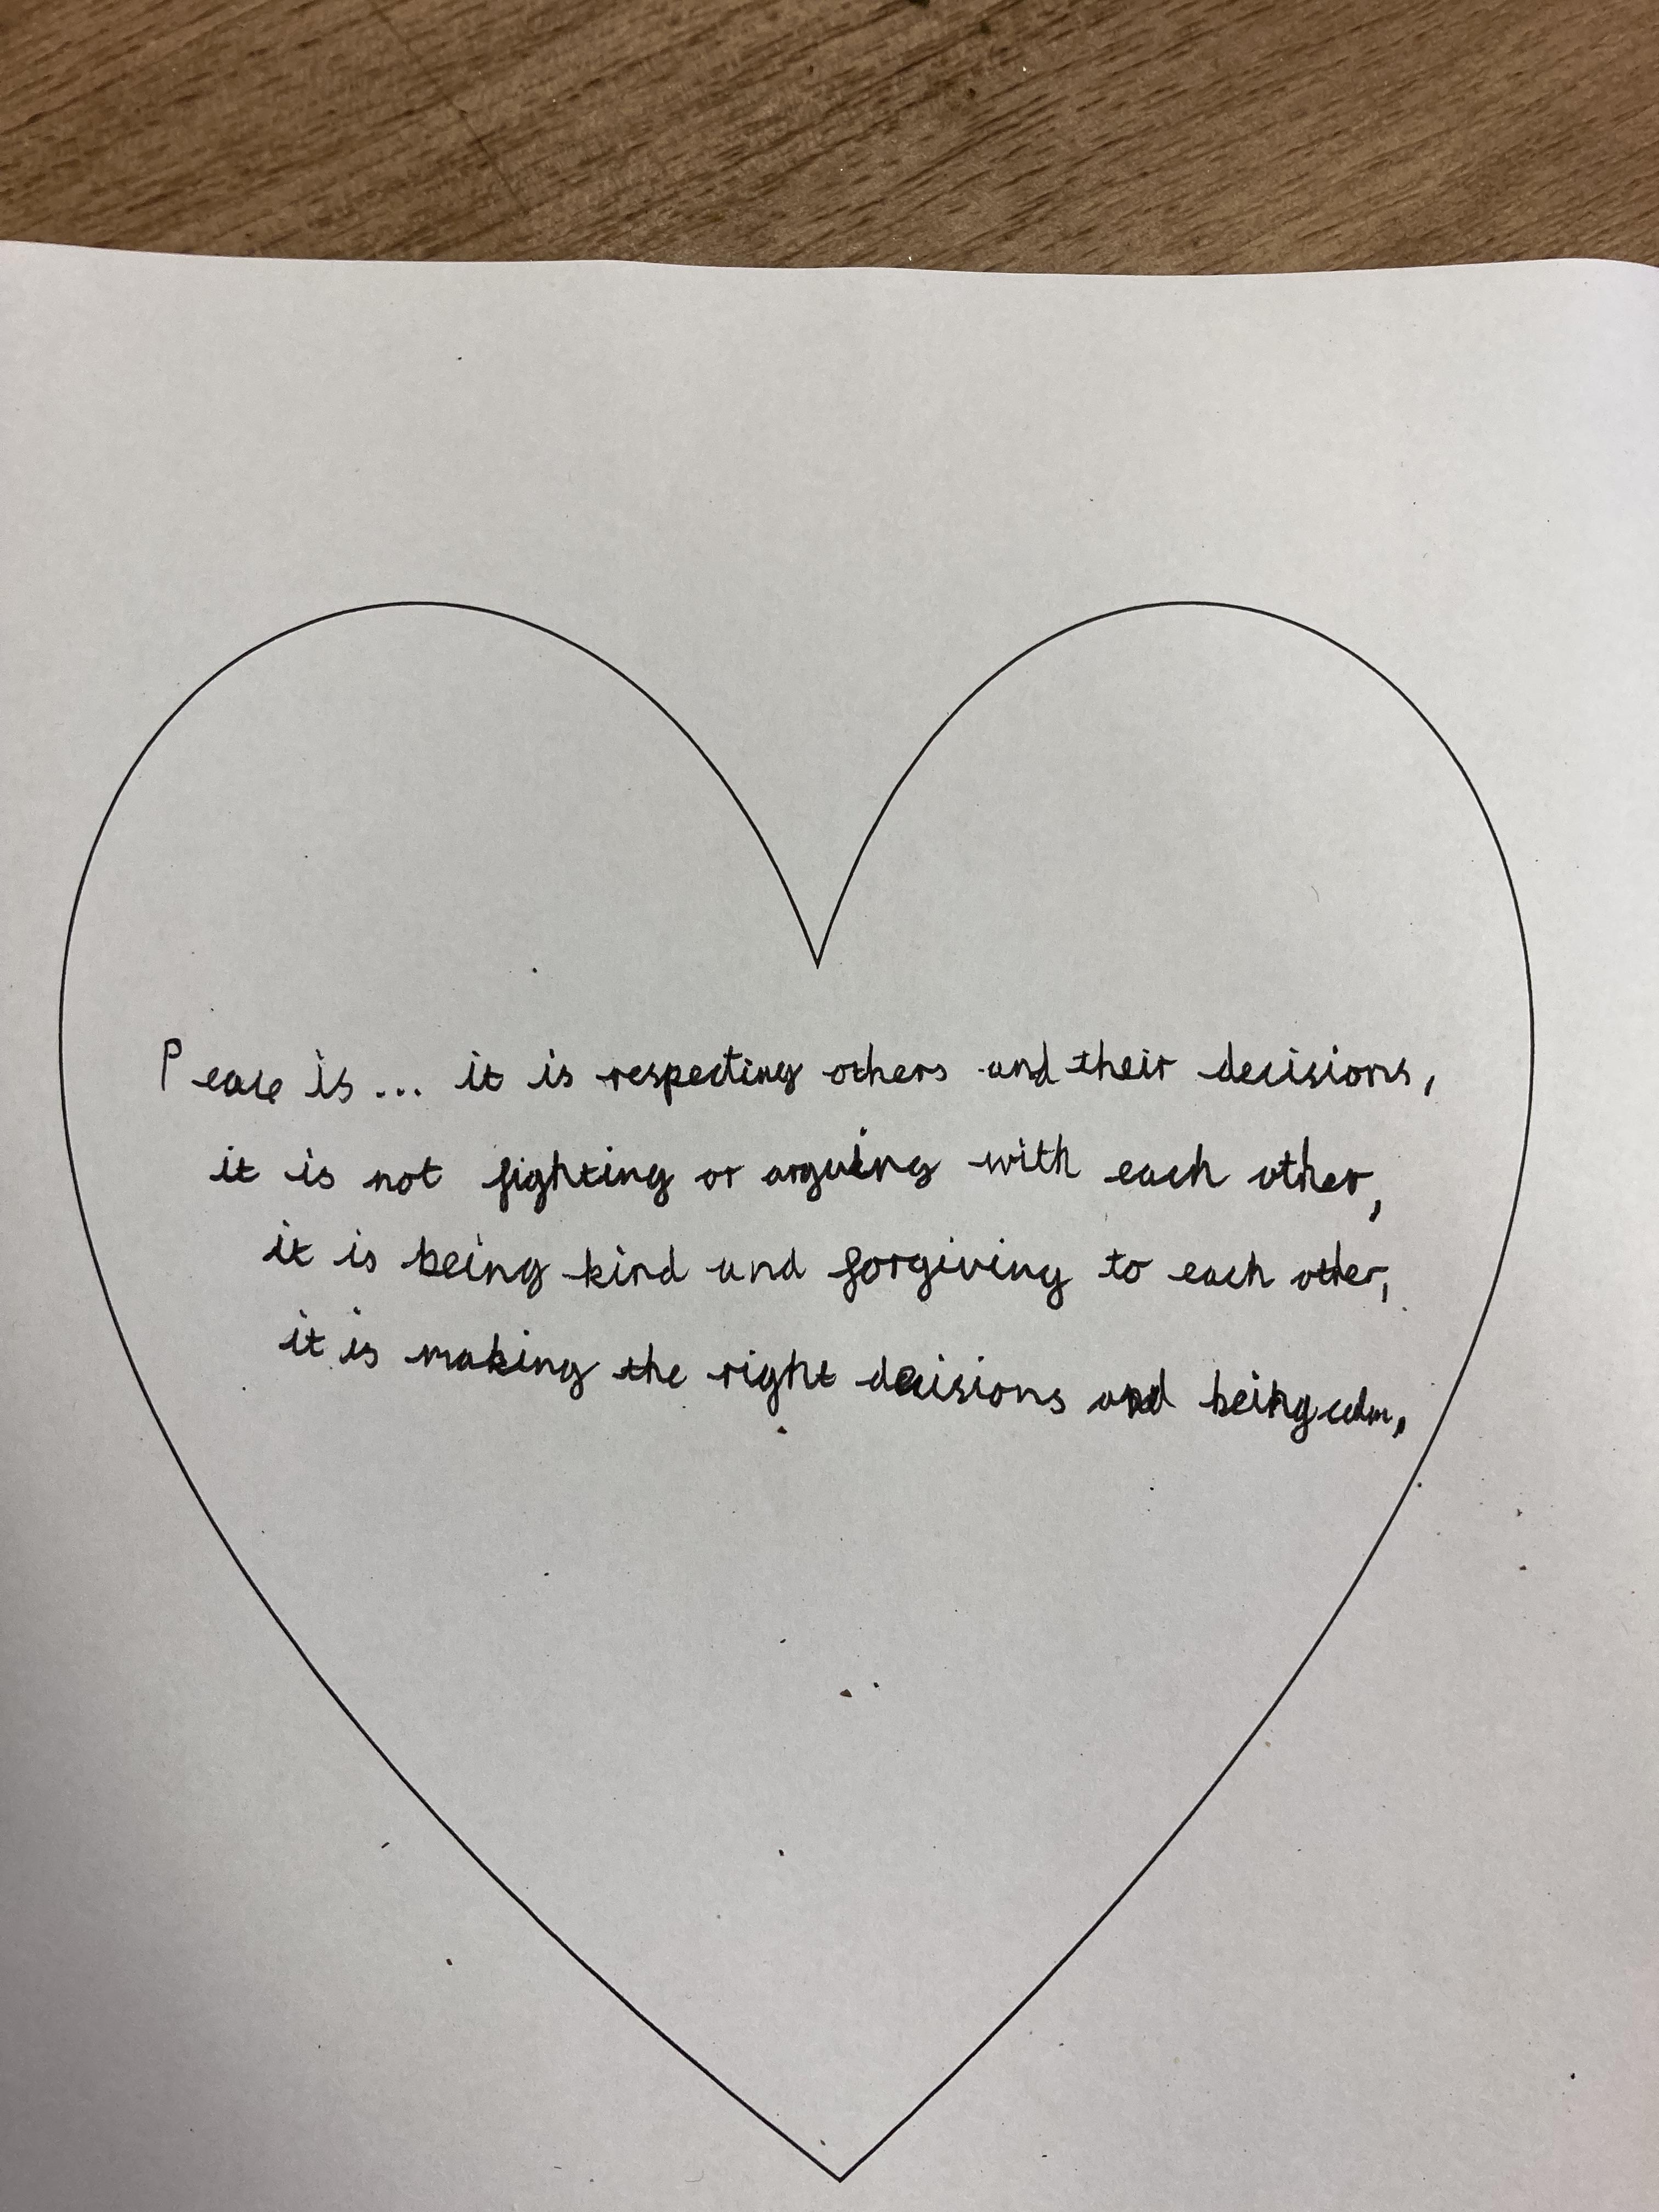 Peace is... it is respecting others and their decisions,
it is not fighting or arguing with each other,
it is being kind and forgiving to each other,
it is making the right decisions and being calm,